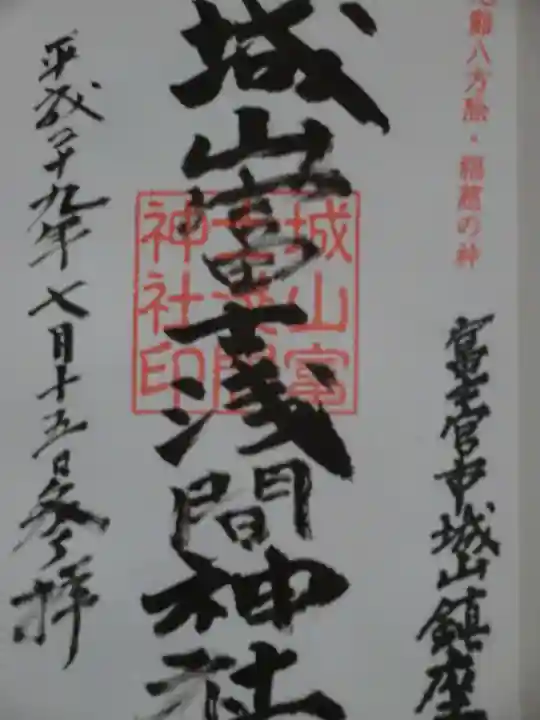 八方除・福寿の神
富士宮市城山鎮座
城山富士浅間神社
城山富
士浅間
神社印
平成二十九年七月十五日参拝